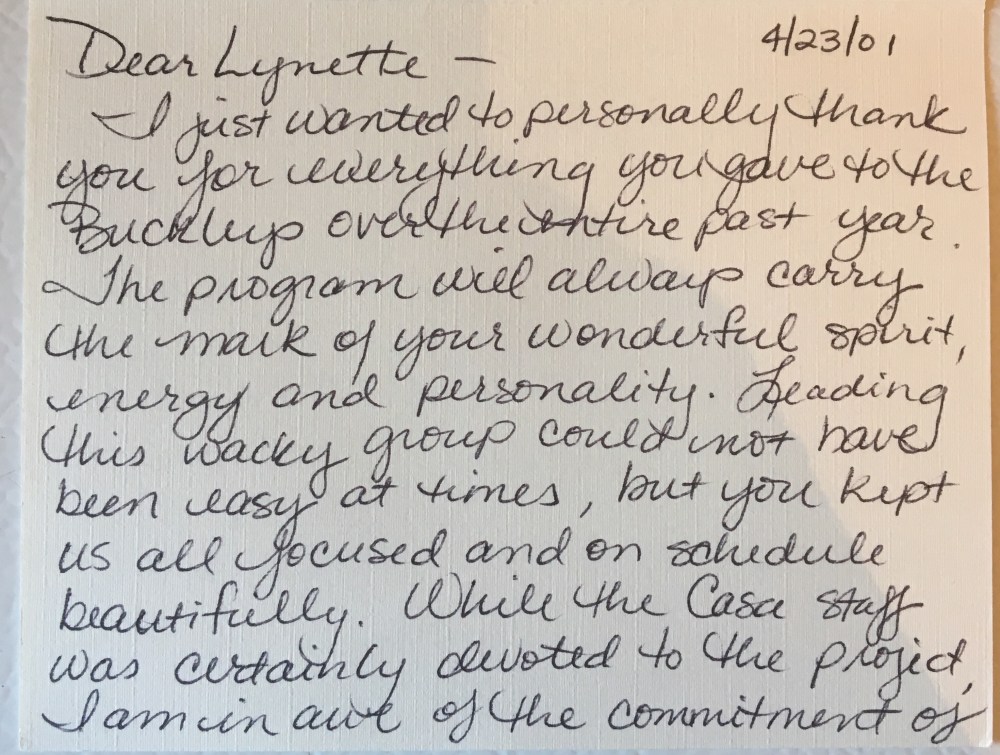 Dear Lynette — 4/23/01
I just wanted to personally thank
you for everything you gave to the
Buckleup over the entire past year.
The program will always carry
the mark of your wonderful spirit,
energy and personality. Leading
this wacky group could not have
been easy at times, but you kept
us all focused and on schedule
beautifully. While the Casa staff
was certainly devoted to the project,
I am in awe of the commitment of